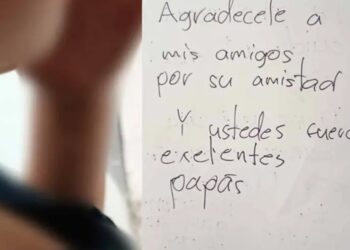 Agradecele a
mis amigos
por su amistad
Y ustedes
exelentes
papás